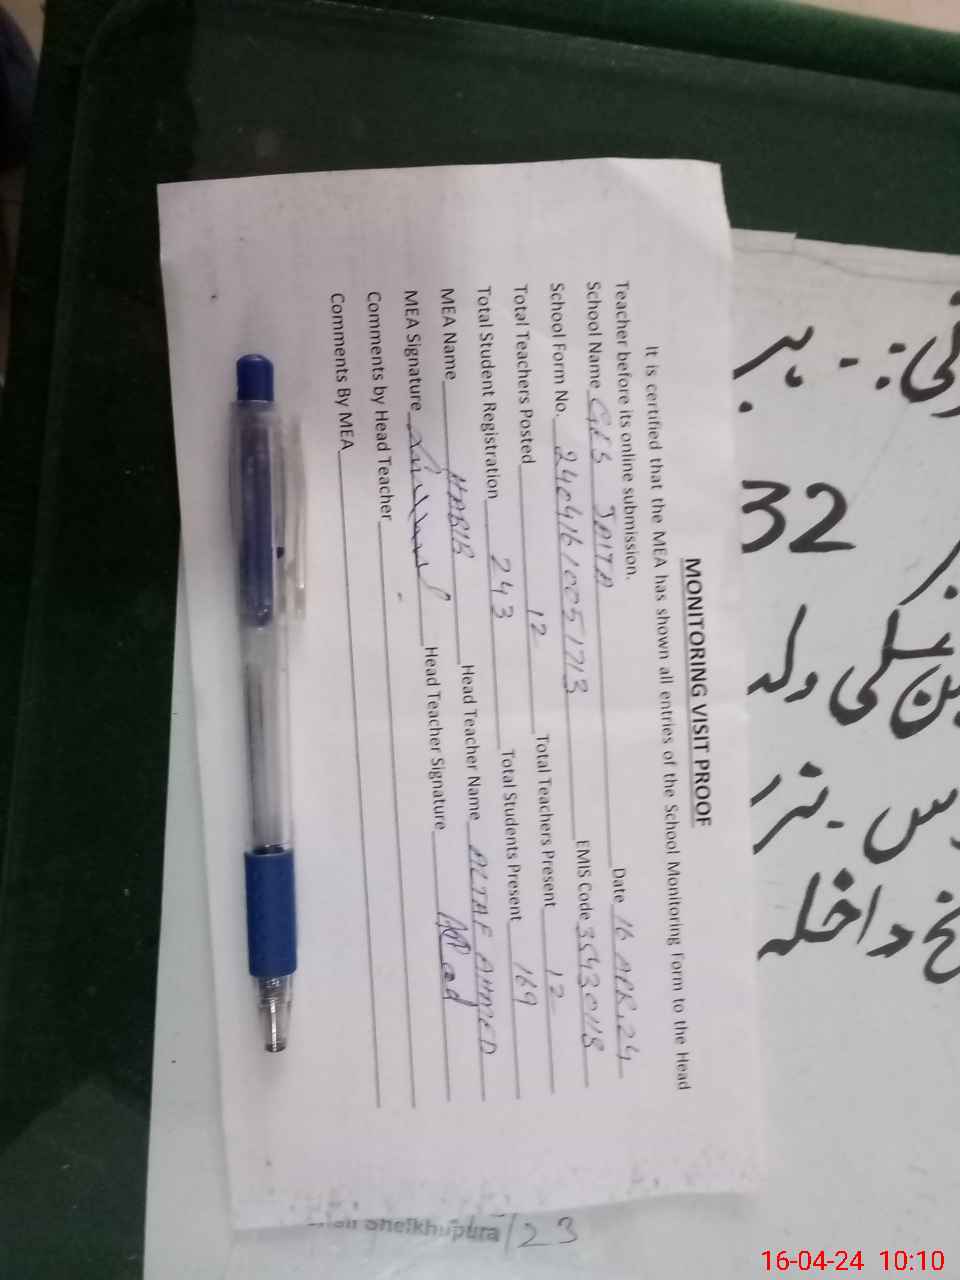 MONITORING VISIT PROOF
It is certified that the MEA has shown all entries of the School Monitoring Form to the Head
Teacher before its online submission.
School Name GES JAITA Date 16 APR.24
School Form No. 24041610051713 EMIS Code 35430118
Total Teachers Posted 12 Total Teachers Present 12
Total Student Registration 243 Total Students Present 169
MEA Name HABIB Head Teacher Name ALTAF AHMED
MEA Signature Head Teacher Signature
Comments by Head Teacher
Comments By MEA
32
داخلہ
Sheikhupura/23
16-04-24 10:10